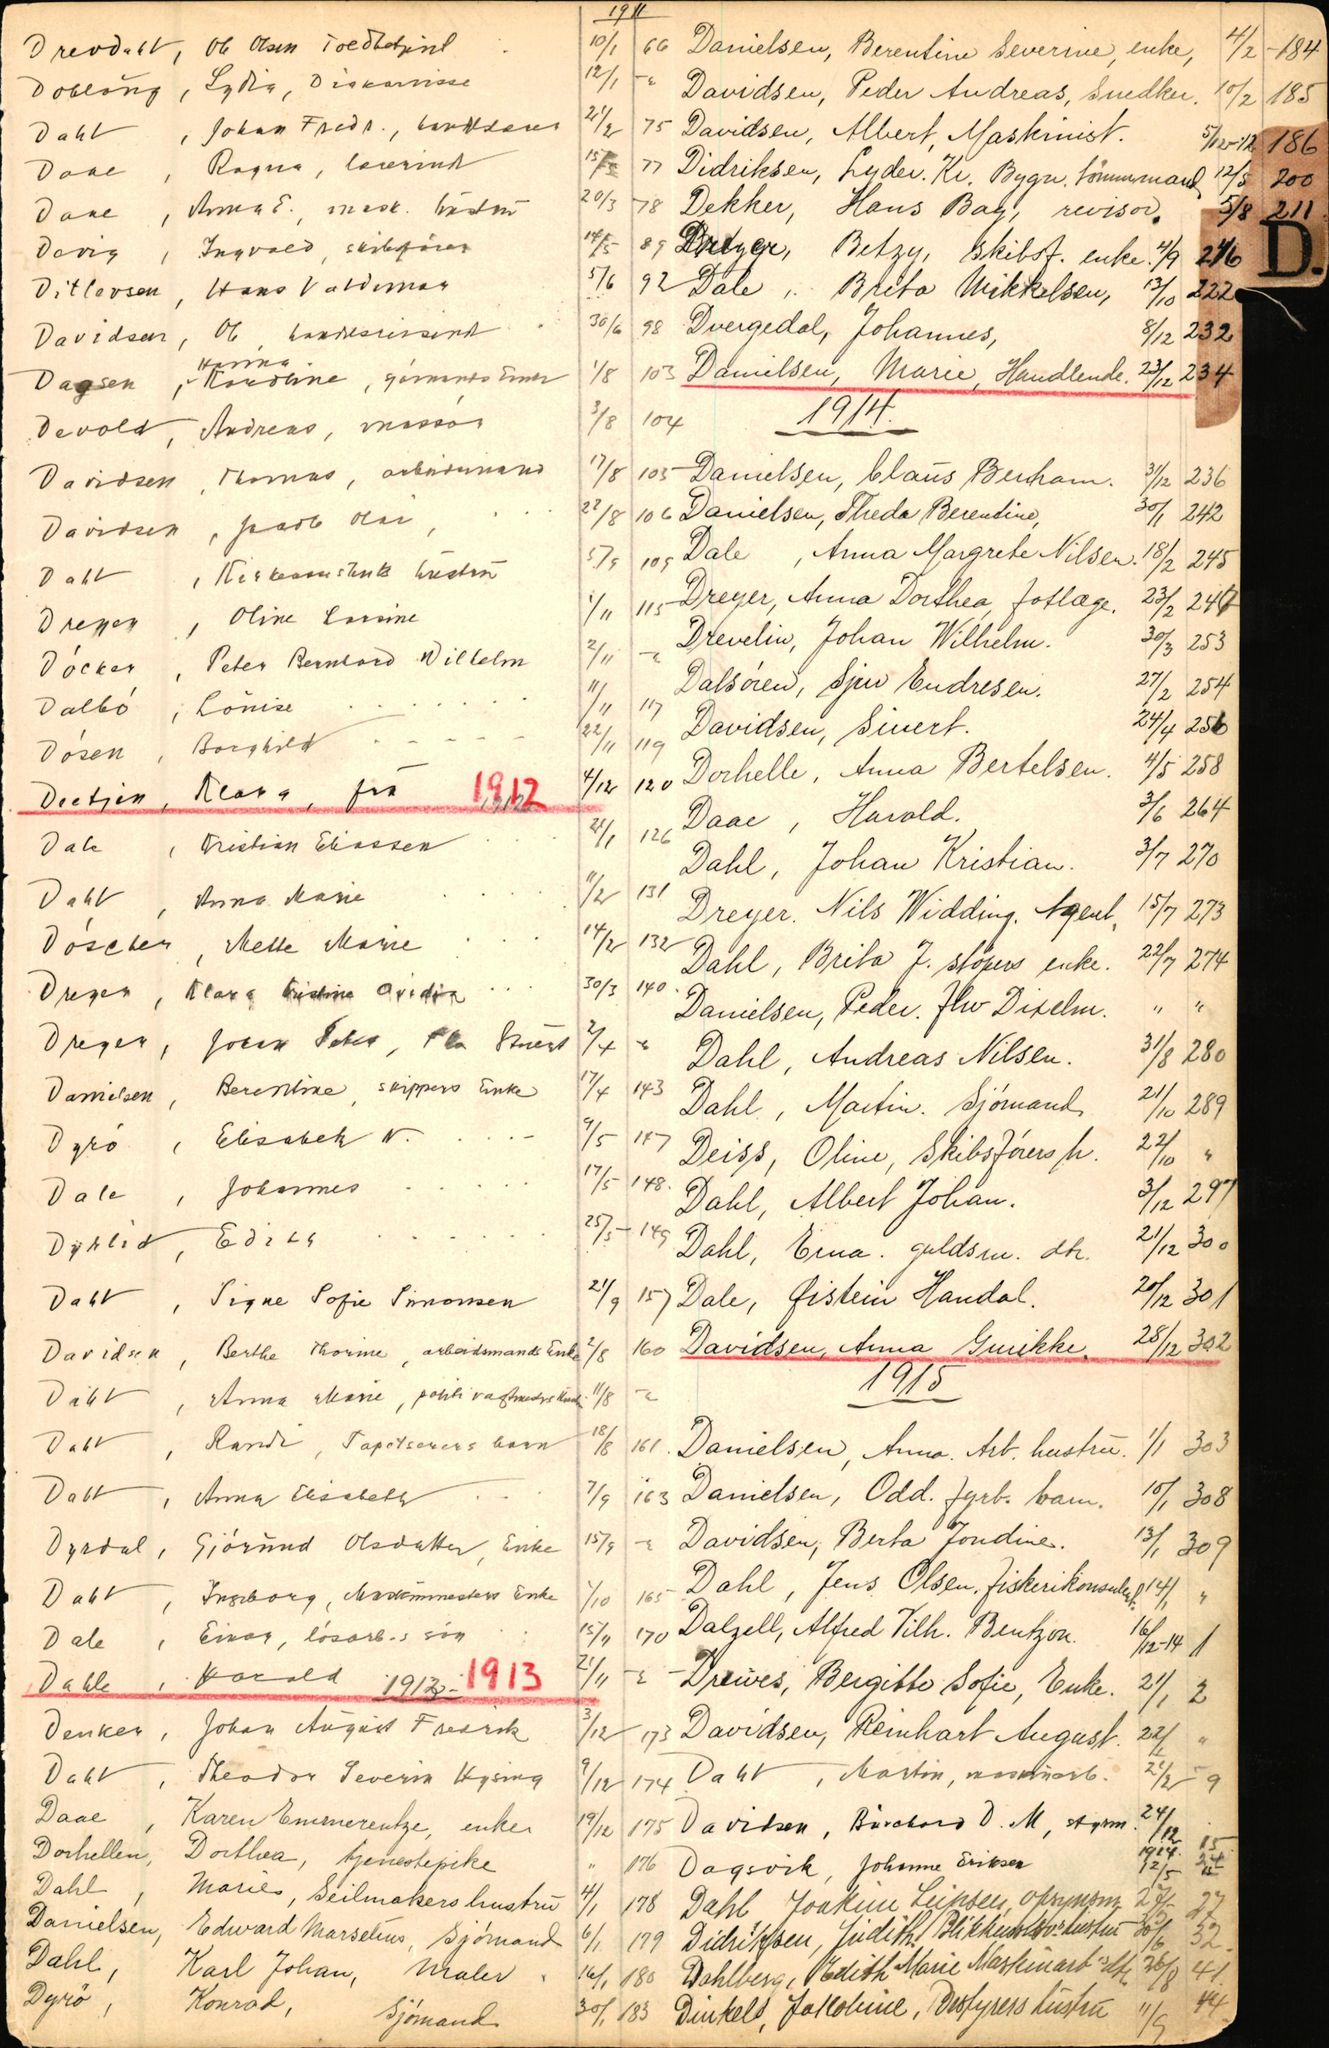 1911
Drevdahl, Ole Olsen Toldbetjent 10/1 66
Dobloug, Lydia, Diakonisse 12/1 "
Dahl, Johan Fredr., 21/2 75
Daae, Ragna, lærerinde 15/3 77
Daae, Anna E., mask. hustru 20/3 78
Davig, Ingvald, skibsfører 14/5 89
Ditlevsen, Hans Valdemar 5/6 92
Davidsen, Ole, 30/6 98
Dagsen, Hanna Karoline, 1/8 103
Devold, Andreas, massør 3/8 104
Davidsen, Thomas, arbeidsmand 17/8 105
Davidsen, Jakob Olai, 22/8 106
Dahl, hustru 5/9 109
Dreyer, Oline Lovise 1/11 115
Döcker, Peter Bernhard Wilhelm 2/11 "
Dalbö, Louise 11/11 117
Dösen, Borghild 22/11 119
Deetjen, Klara, frü 1912 4/12 120
Dale, Kristian Eliassen 25/1 126
Dahl, Anna Marie 11/2 131
Döscher, Mette Marie 14/2 132
Dreyer, Klara Kristine Ovidia 30/3 140
Dreyer, Johan Peter, 2/4 "
Danielsen, Berentine, skippers Enke 17/4 143
Dyrö, Elisabeth N. 9/5 147
Dale, Johannes 17/5 148
Dyhlid, Edith 25/5 149
Dahl, Signe Sofie Simonsen 21/9 157
Davidsen, Berthe Thorine, arbeidsmands Enke 2/8 160
Dahl, Anna Marie, 11/8 "
Dahl, Randi, Tapetserers barn 18/8 161
Dahl, Anna Elisabeth 7/9 163
Dyrdal, Gjörund Olsdatter, Enke 15/9 "
Dahl, Ingeborg, Maskinmesters Enke 1/10 165
Dale, Einar, lösarb.s sön 15/11 170
Dahle, Harald 1913 1913 21/11 "
Denker, Johan August Fredrik 3/12 173
Dahl, Theodor Severin Hysing 9/12 174
Daae, Karen Emmerentze, enke 19/12 175
Dorhellen, Dorthea, tjenestepike " 176
Dahl, Marie, Seilmakers hustru 4/1 178
Danielsen, Edward Marselius, Sjömand 6/1 179
Dahl, Karl Johan, Maler 16/1 180
Dyrö, Konrad, Sjömand 30/1 183
Danielsen, Berentine Severine, enke, 4/2 184
Davidsen, Peder Andreas, Snedker. 10/2 185
Davidsen, Albert, Maskinist. 5/12-12 186
Didriksen, Lyder. Kr. Bygn. tömmermand 12/5 200
Dekker, Hans Bay, revisor. 5/8 211
Dreyer, Betzy, Skibsf. enke. 4/9 216
D.
Dale, Brita Mikkelsen, 13/10 222
Dvergedal, Johannes, 8/12 232
Danielsen, Marie, Handlende. 23/12 234
1914.
Danielsen, Claus Benham. 31/12 236
Danielsen, Theda Berentine, 30/1 242
Dale, Anna Margrete Nilsen. 18/2 245
Dreyer, Anna Dorthea, fotlæge. 23/2 247
Drevelin, Johan Wilhelm. 30/3 253
Dalsören, Sjur Endresen. 27/2 254
Davidsen, Sivert. 24/4 256
Dorhelle, Anna Bertelsen. 4/5 258
Daae, Harald. 3/6 264
Dahl, Johan Kristian. 3/7 270
Dreyer. Nils Widding. Agent, 15/7 273
Dahl, Brita J. stöpers enke. 22/7 274
Danielsen, Peder. " "
Dahl, Andreas Nilsen. 31/8 280
Dahl, Martin. Sjömand 21/10 289
Deiss, Oline, Skibsförers h. 22/10 "
Dahl, Albert Johan. 3/12 297
Dahl, Erna. guldsm. dtr. 21/12 300
Dale, Øistein Handal. 20/12 301
Davidsen, Anna Gurikke. 28/12 302
1915
Danielsen, Anna. Arb. hustru. 1/1 303
Danielsen, Odd. fyrb. barn. 10/1 308
Davidsen, Berta Jondine. 13/1 309
Dahl, Jens Olsen. fiskerikonsulent. 14/1 "
Dalzell, Alfred Vilh. Bentzon. 16/12-14 1
Drewes, Bergitte Sofie, Enke. 21/1 2
Davidsen, Reinhart August. 22/1 "
Dahl, Martin, maskinarb. 9
Davidsen, Burchard D. M, styrm. 24/12 1914 15
Dagsvik, Johanne Eriksen 12/5 24
Dahl Joakim Leipsen, 27
Didriksen, Judith, 30/6 32
Dahlberg, Edith Marie Maskinarb. 26/8 41
Dinkels, Jakobine, hustru 11/9 44